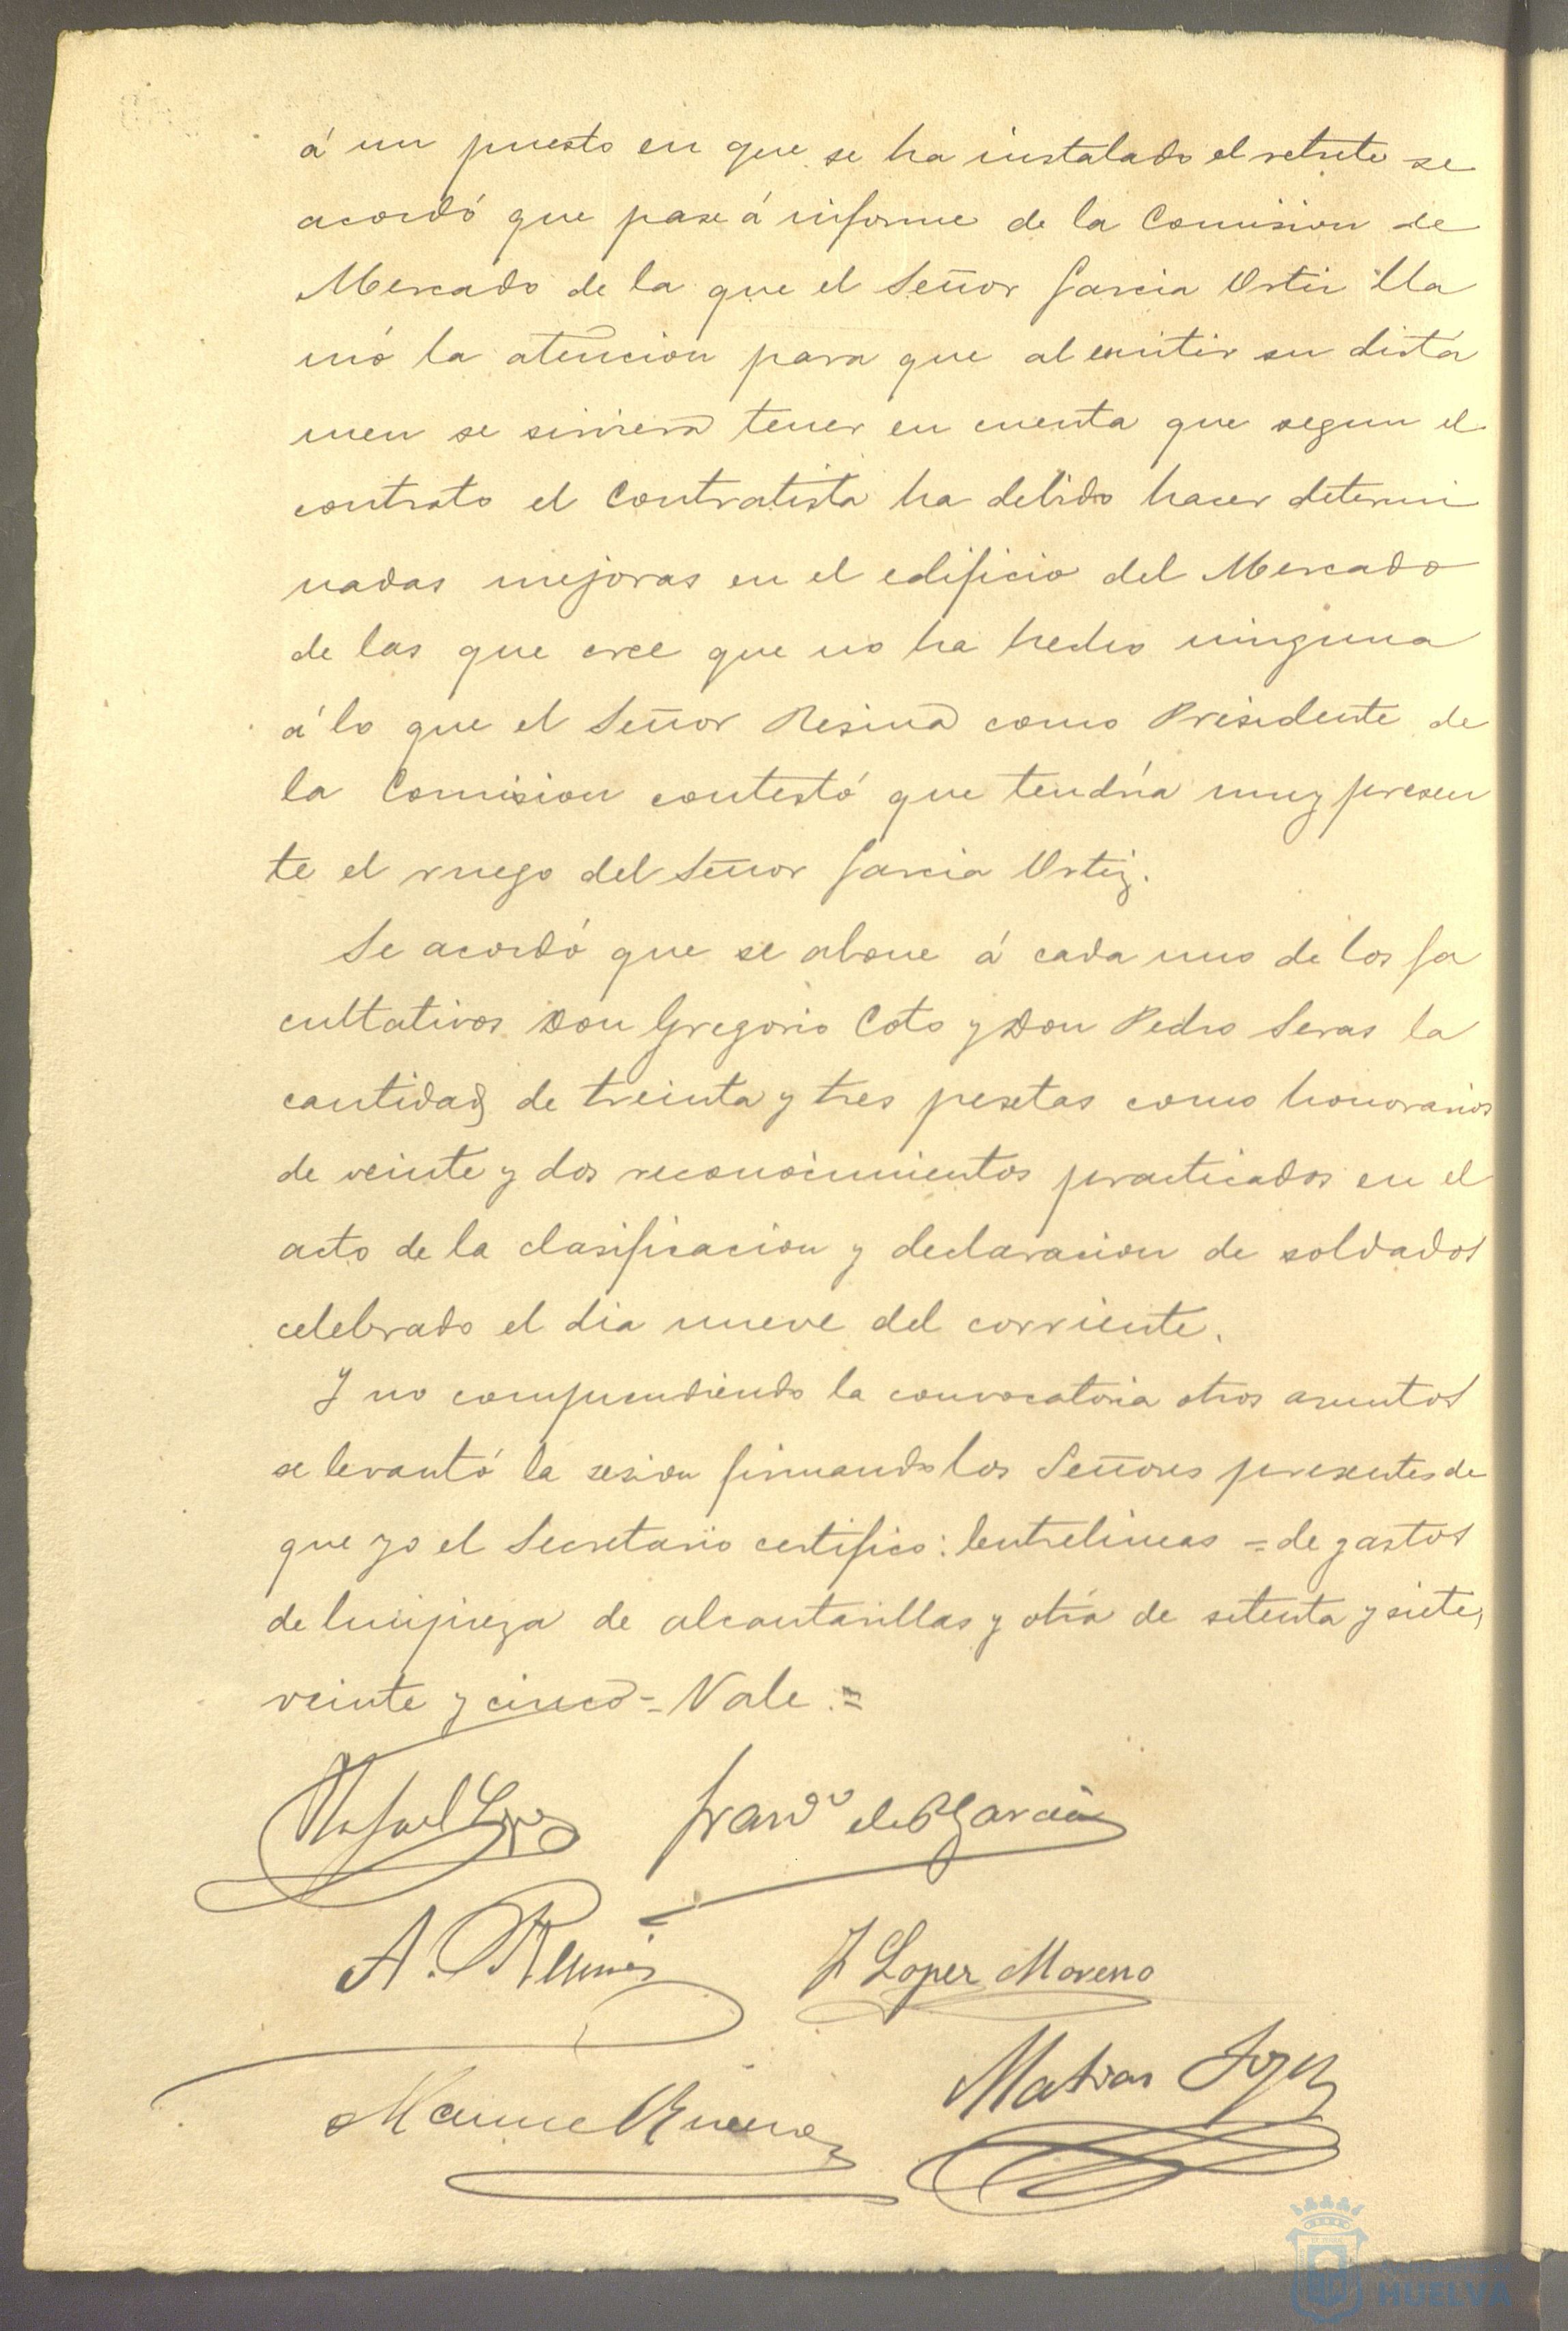 á un puesto en que se ha instalado el retrete se
acordó que pase á informe de la Comision de
Mercado de la que el Señor Garcia Ortiz lla
mó la atencion para que al emitir su dictá
men se sirviera tener en cuenta que segun el
contrato el Contratista ha debido hacer determi
nadas mejoras en el edificio del Mercado
de las que cree que no ha hecho ninguna
á lo que el Señor Resina como Presidente de
la Comision contestó que tendria muy presen
te el ruego del Señor Garcia Ortiz.
Se acordó que se abone á cada uno de los fa
cultativos Don Gregorio Coto y Don Pedro Seras la
cantidad de treinta y tres pesetas como honorarios
de veinte y dos reconocimientos practicados en el
acto de la clasificacion y declaracion de soldados
celebrado el dia nueve del corriente.
Y no comprendiendo la convocatoria otros asuntos
se levantó la sesion firmando los Señores presentes de
que yo el Secretario certifico: Entrelineas = de gastos
de limpieza de alcantarillas y otra de setenta y siete,
veinte y cinco = Vale =
Rafael Lopez
Franco de P Garcia
A. Resina
J Lopez Moreno
Matias Lopez
Manuel
HUELVA